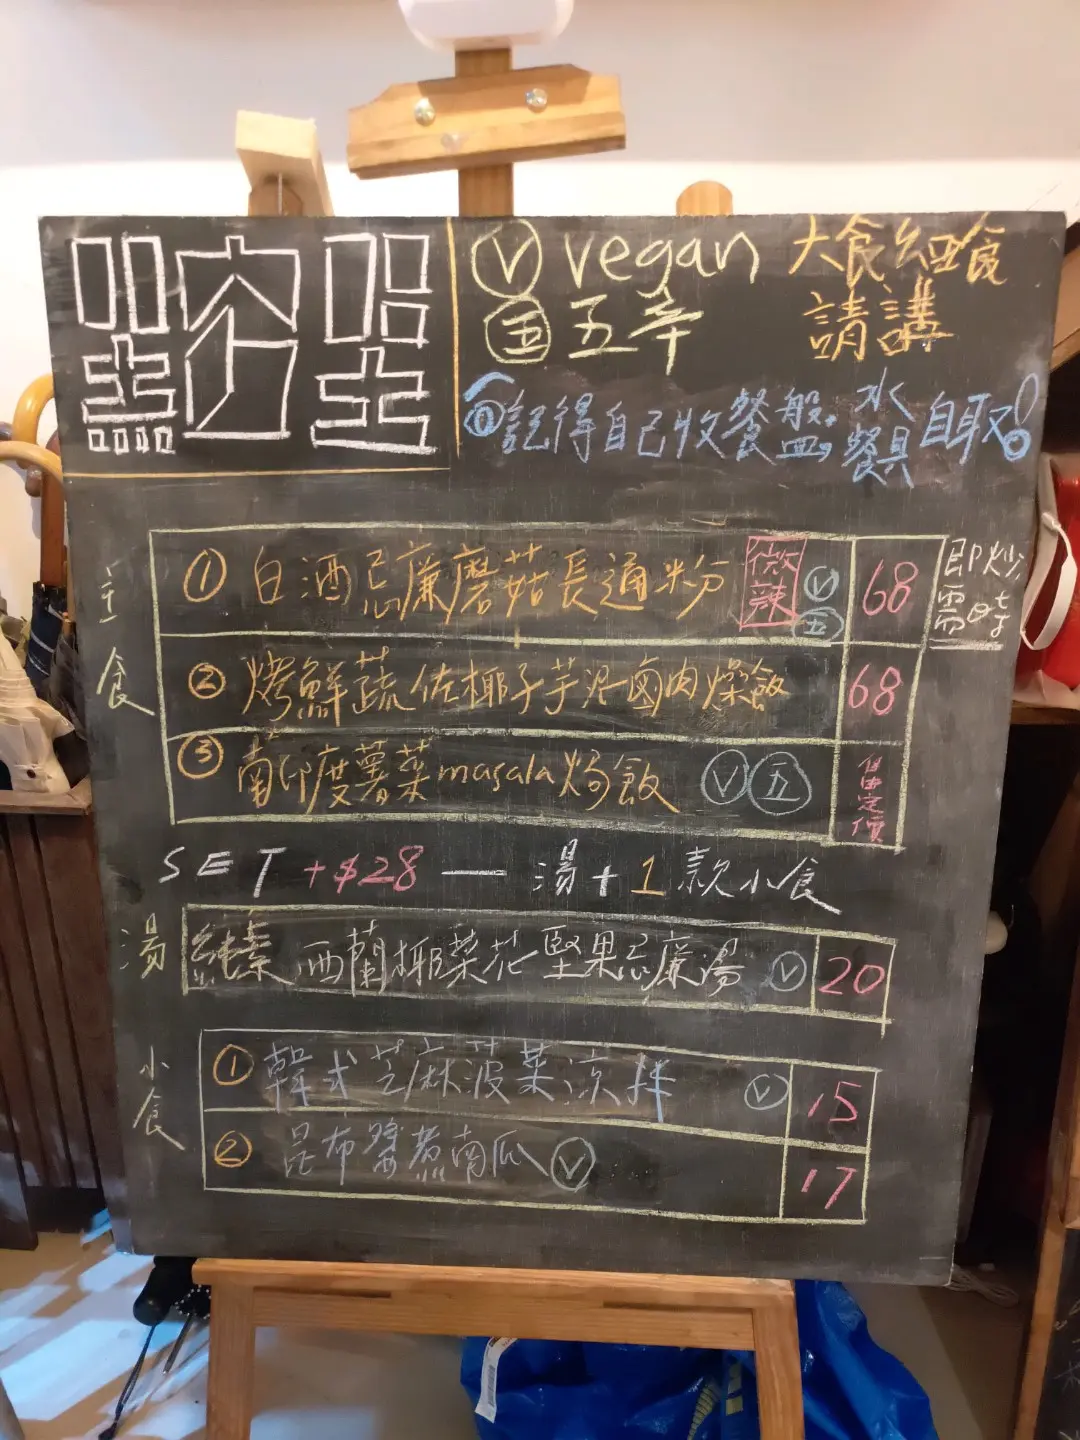 點窩坐
Ⓥ vegan 大食細食
㊄ 五辛 請講
記得自己收餐盤, 水 餐具 自取!
主食
① 白酒忌廉磨菇長通粉 微辣 Ⓥ ㊄ 68 即炒需時
② 烤鮮蔬佐椰子芋泥鹵肉燥飯 68
③ 南印度薯菜masala焗飯 Ⓥ ㊄ 自由定價
SET +$28 — 湯+1款小食
湯
純素 西蘭椰菜花堅果忌廉湯 Ⓥ 20
小食
① 韓式芝麻菠菜涼拌 Ⓥ 15
② 昆布煮南瓜 Ⓥ 17